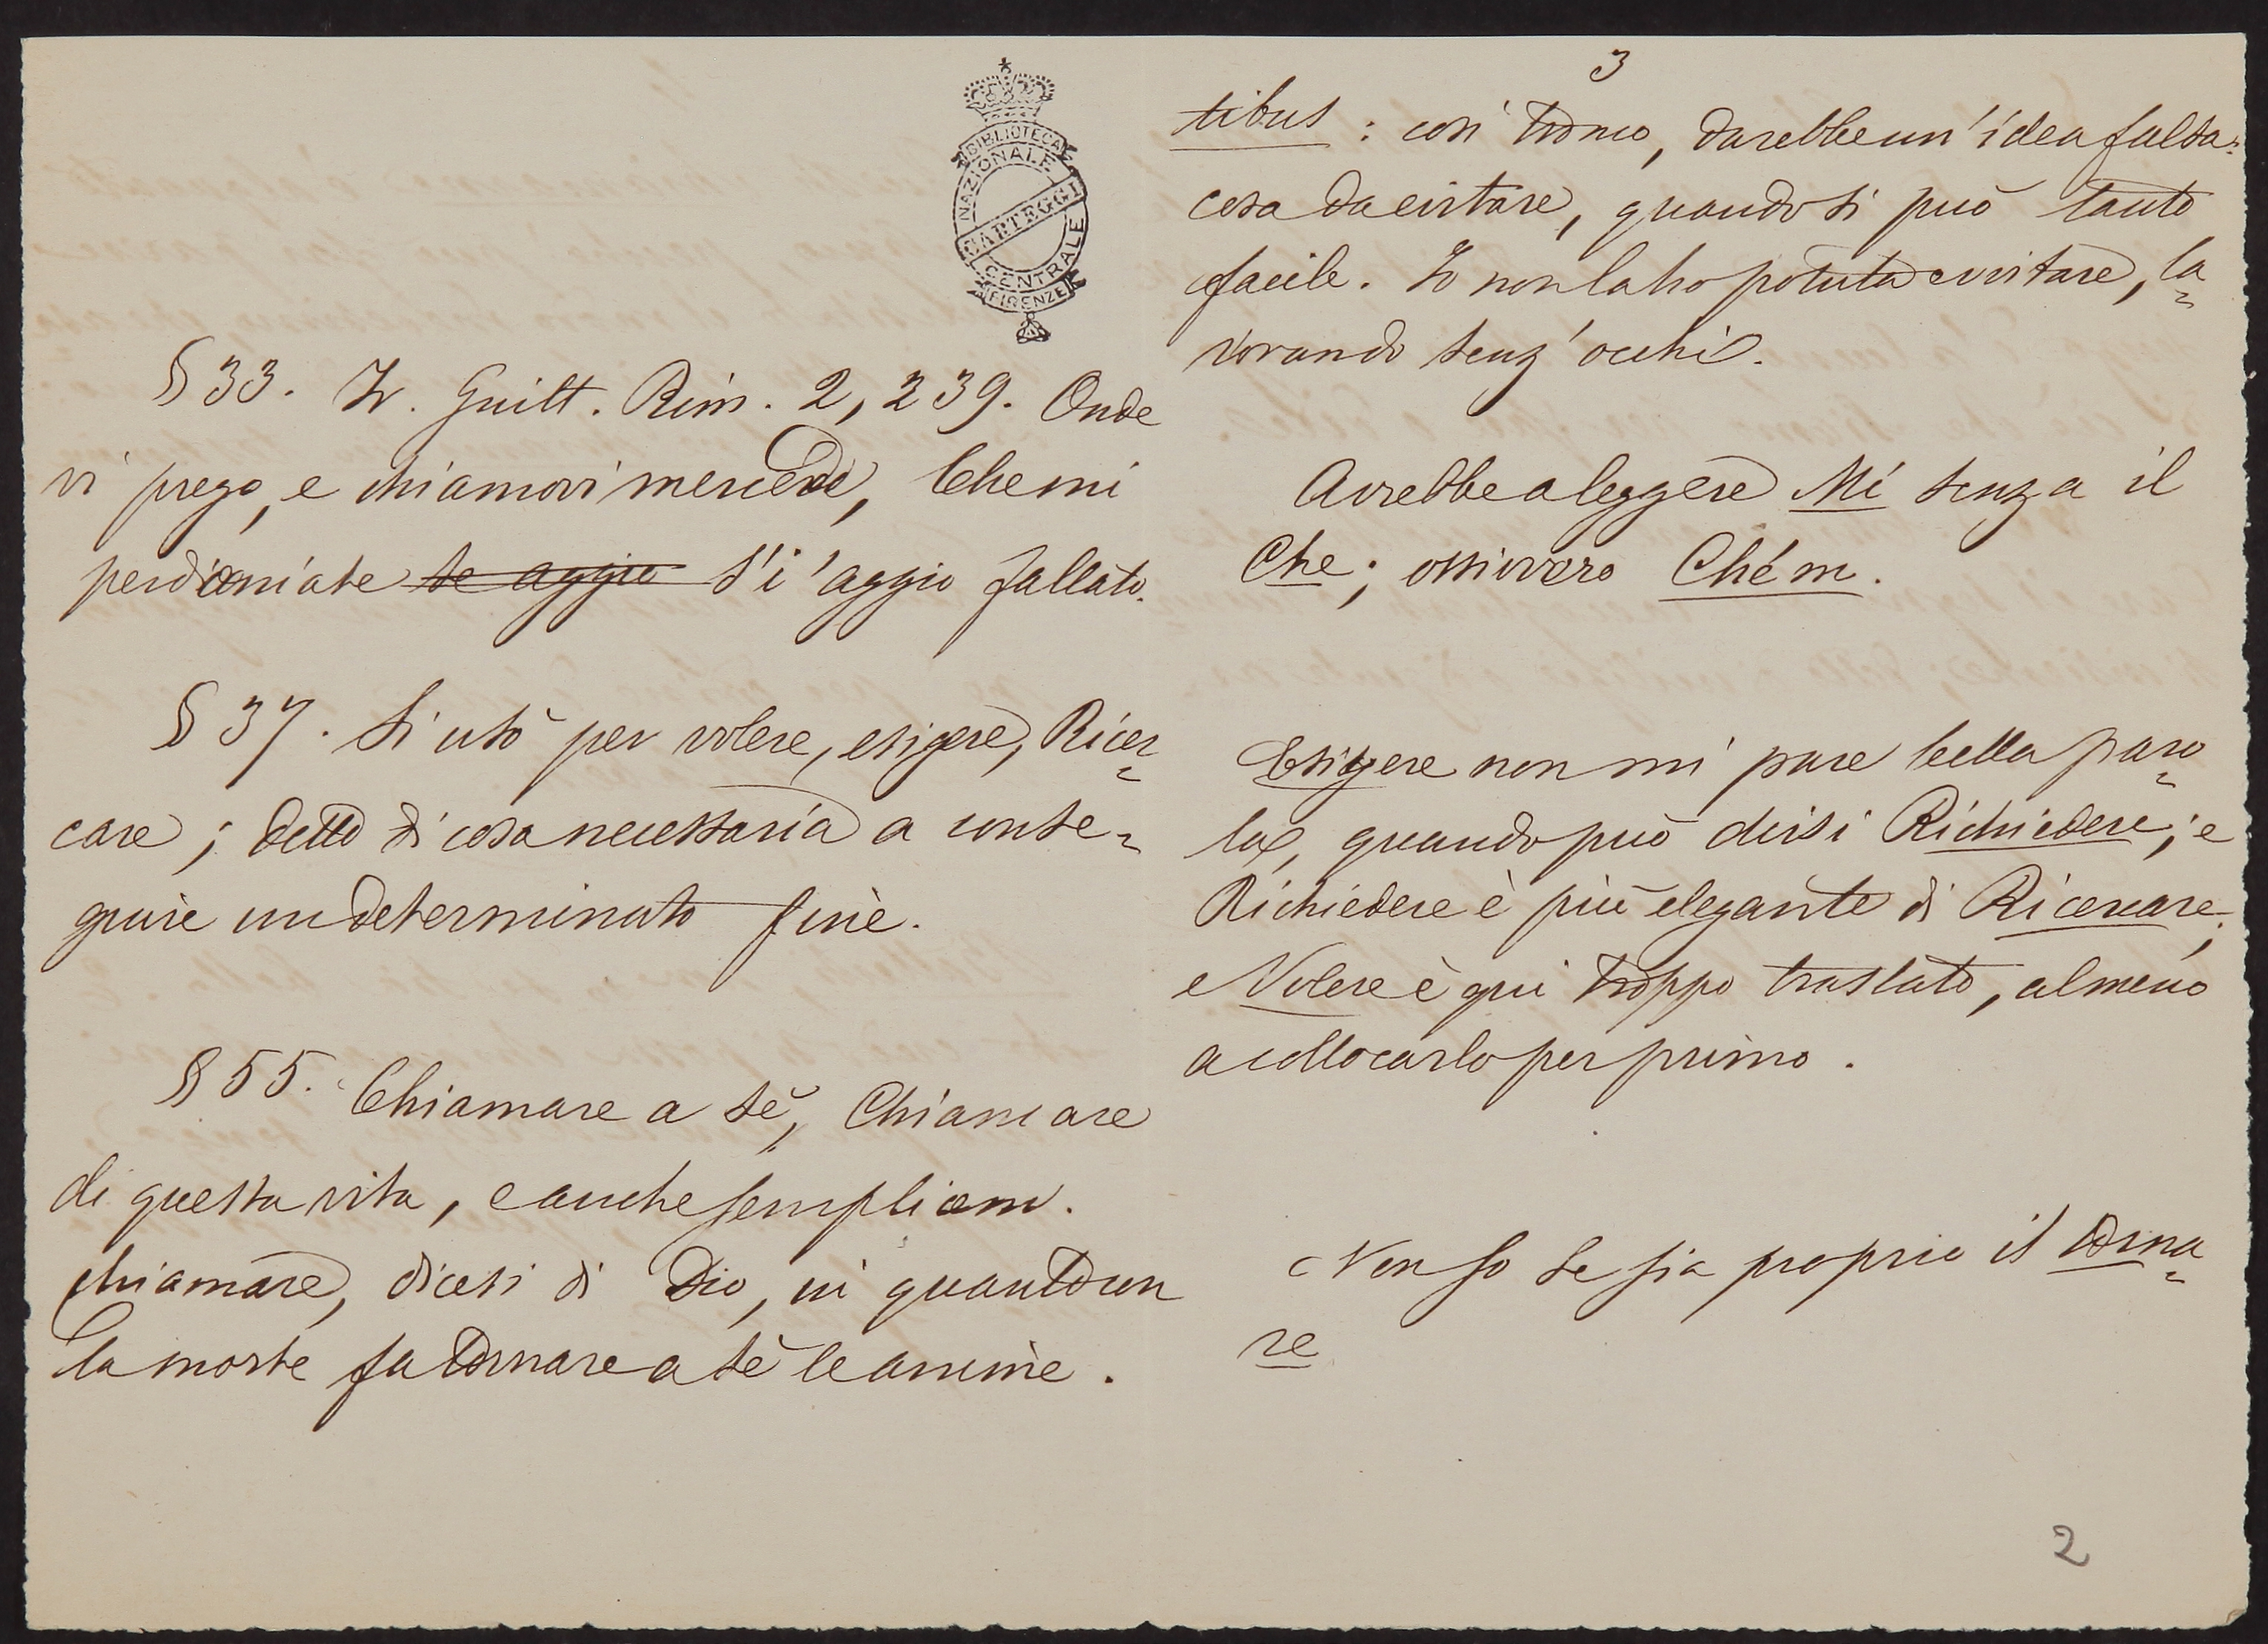 BIBLIOTECA
NAZIONALE
CARTEGGI
CENTRALE
FIRENZE
§ 33. Fr. Guitt. Rim. 2, 239. Onde
vi prego, e chiamovi mercede, Che mi
perdoniate se aggio s'i' aggio fallato.
§ 37. Si usò per volere, esigere, Ricer=
care; detto di cosa necessaria a conse=
guire un determinato fine.
§ 55. Chiamare a sè, Chiamare
di questa vita, e anche semplicem.
chiamare, dicesi di Dio, in quanto con
la morte fa tornare a sè le anime.
3
tibus: così tronco, darebbe un' idea falsa:
cosa da evitare, quando si può tanto
facile. Io non la ho potuta evitare, la=
vorando senz' occhi.
Avrebbe a leggere Mi senza il
Che; ossivvero Ché m.
Esigere non mi pare bella paro=
la, quando può dirsi Richiedere; e
Richiedere è più elegante di Ricercare;
e Volere è qui troppo traslato, almeno
a collocarlo per primo.
Non so se sia proprio il torna=
re
2